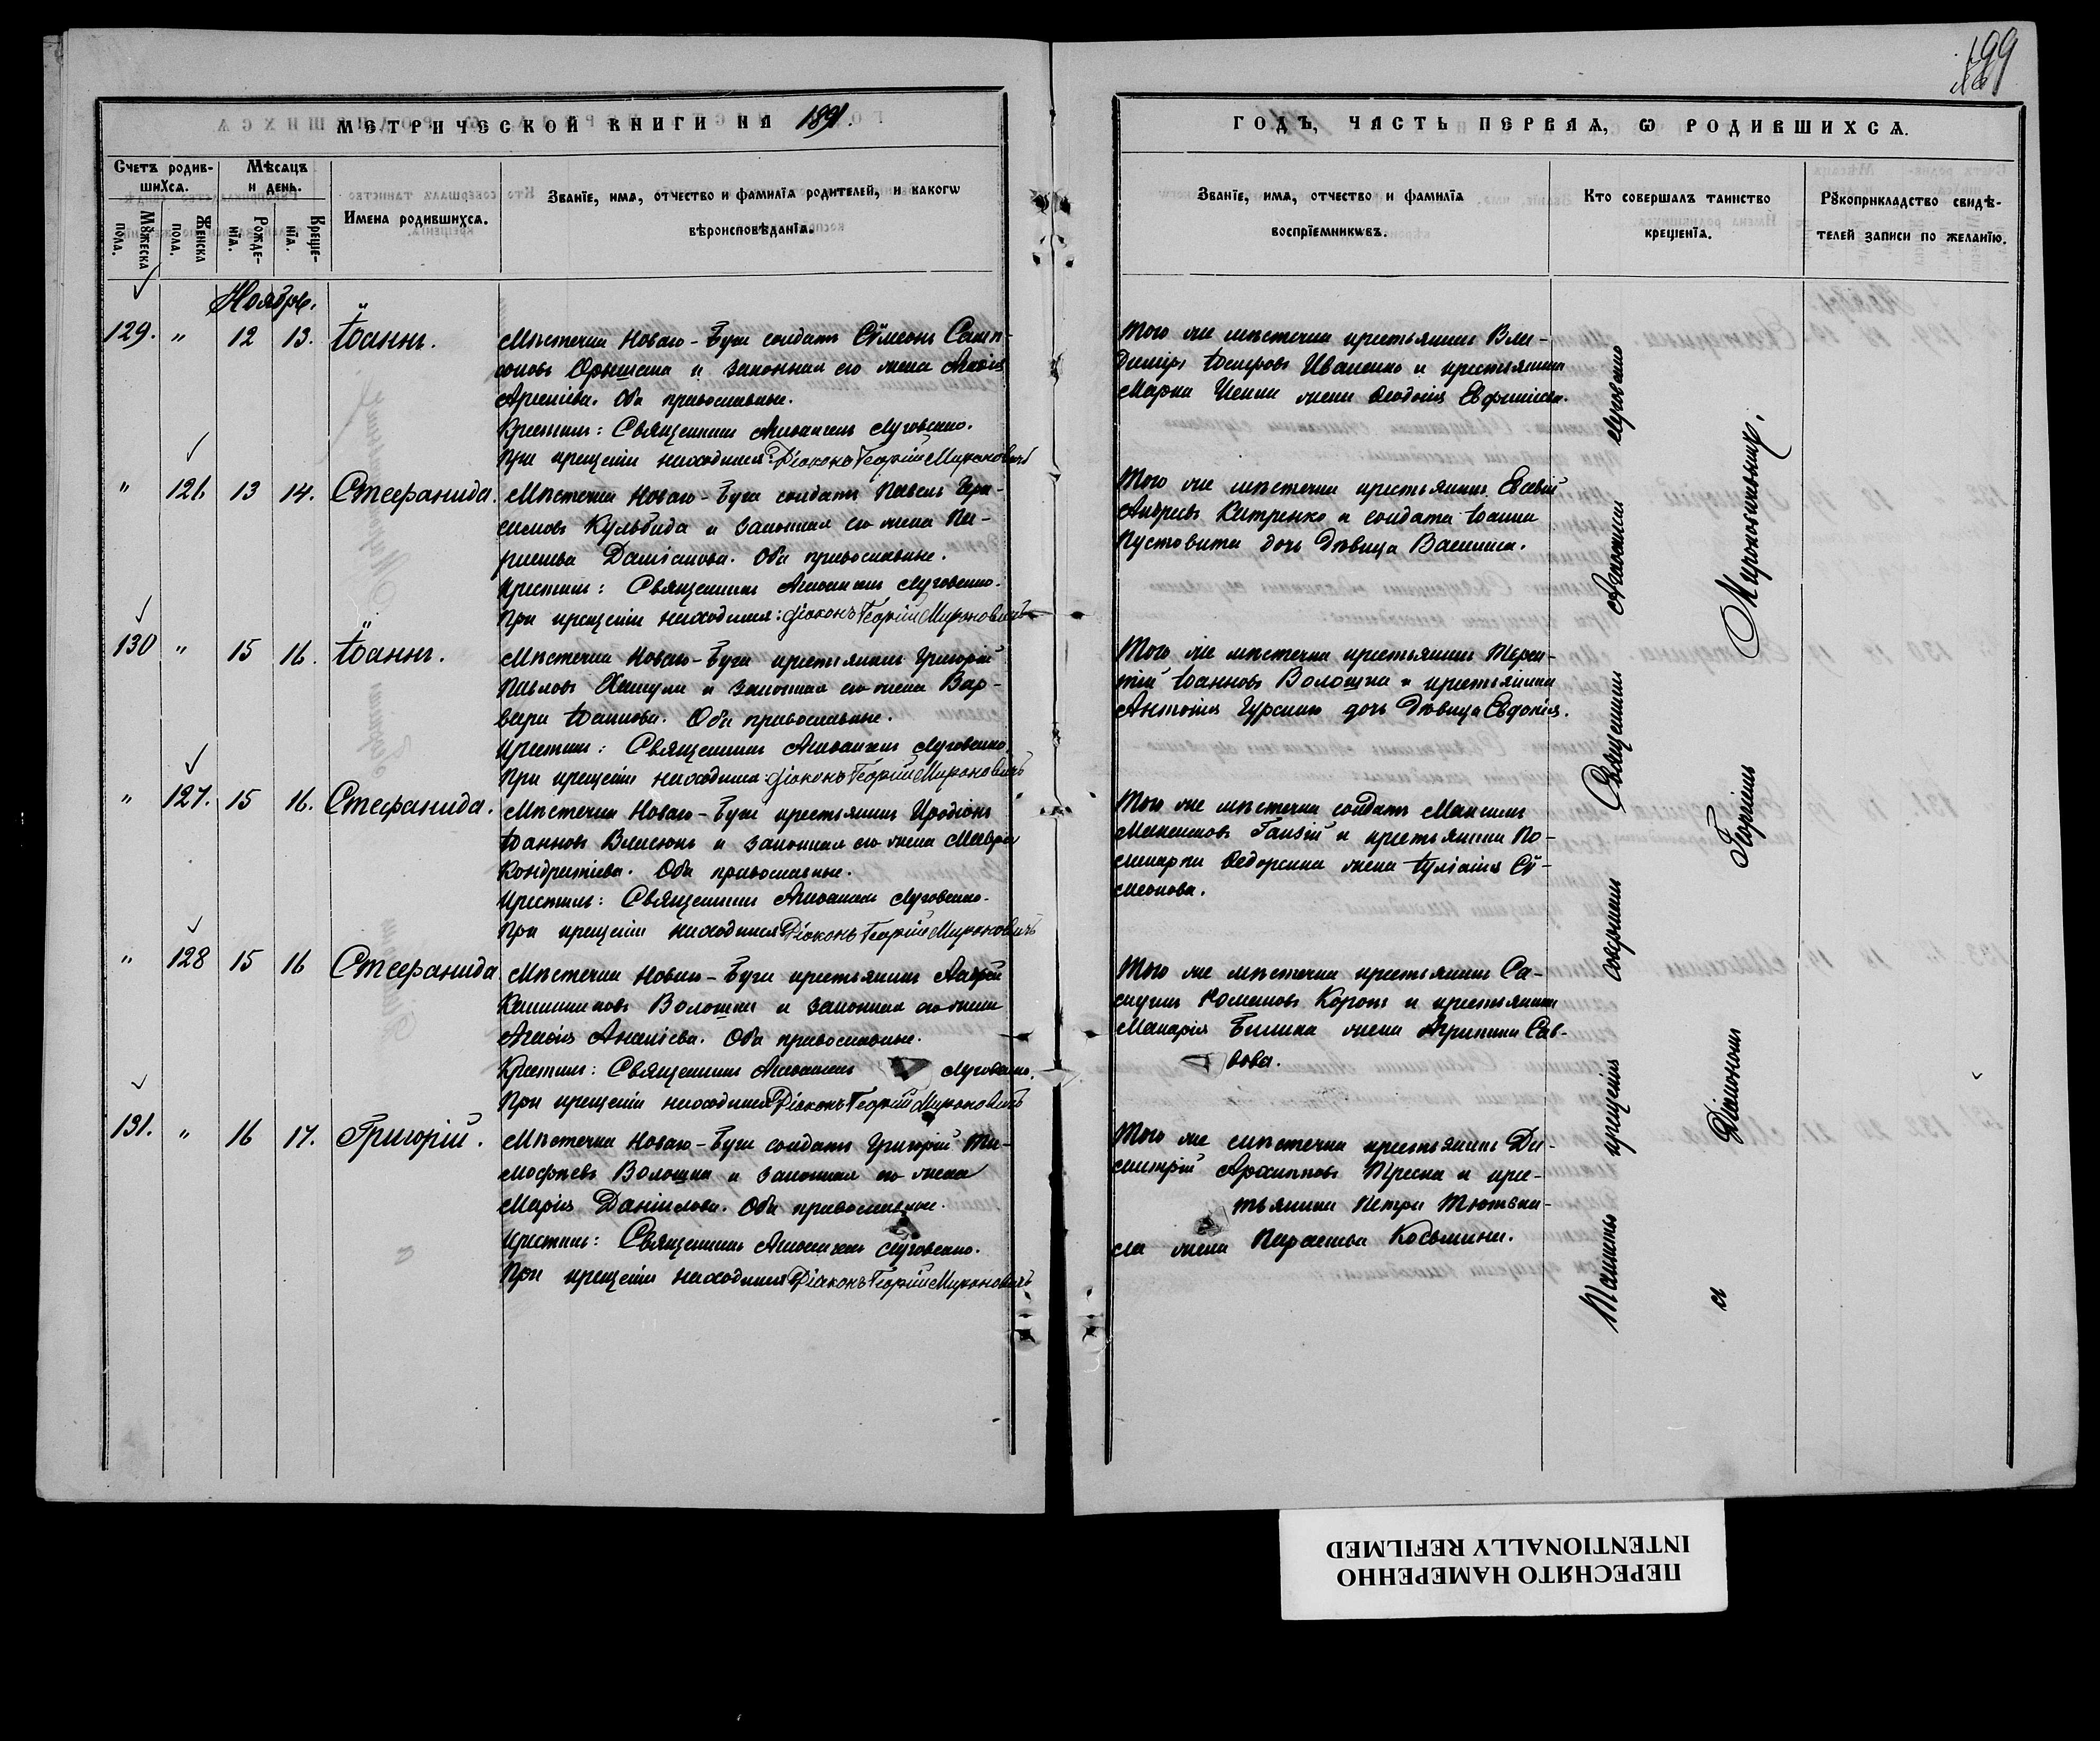 199
МЕТРИЧЕСКОЙ КНИГИ НА 1891.
ГОДЪ, ЧАСТЬ ПЕРВАЯ, Ѡ РОДИВШИХСЯ.
Счетъ родив-
шихся.
Мѣсяцъ
и день.
Мꙋжеска
пола.
Женска
пола.
Рожде-
нїя.
Креще-
нїя.
Имена родившихся.
Званїе, имя, отчество и фамилїя родителей, и какогѡ
вѣроисповѣданїя.
Званїе, имя, отчество и фамилїя
воспрїемникѡвъ.
Кто совершалъ таинство
крещенїя.
Рꙋкоприкладство свидѣ-
телей записи по желанїю.
Ноябрь.
129. " 12 13. Іоаннъ.
Мѣстечка Новаго-Буга солдатъ Сѵмеонъ Самп-
соновъ и законная его жена Агаѳія
Оба православные.
Крестилъ: Священникъ Аѳанасій Луговенко.
При крещеніи находился: Діаконъ Георгій Мироновичъ
Того же мѣстечка крестьянинъ Вла-
диміръ Іосифовъ Иваненко и крестьянина
Марка жена Ѳеодосія Евфиміева.
" 126. 13 14. Стефанида.
Мѣстечка Новаго-Буга солдатъ Павелъ Гера-
симовъ Кульбида и законная его жена Па-
раскева Даміанова. Оба православные.
Крестилъ: Священникъ Аѳанасій Луговенко.
При крещеніи находился: Діаконъ Георгій Мироновичъ
Того же мѣстечка крестьянинъ Евсевій
Андреевъ и солдата Іоанна
Пустовита дочь дѣвица Василиса.
130 " 15 16. Іоаннъ.
Мѣстечка Новаго-Буга крестьянинъ Григорій
Павловъ и законная его жена Вар-
вара Іоаннова. Оба православные.
Крестилъ: Священникъ Аѳанасій Луговенко.
При крещеніи находился: Діаконъ Георгій Мироновичъ
Того же мѣстечка крестьянинъ Терен-
тій Іоанновъ Волошка и крестьянина
Антонія дочь дѣвица Евдокія.
" 127. 15 16. Стефанида.
Мѣстечка Новаго-Буга крестьянинъ Иродіонъ
Іоанновъ Власюкъ и законная его жена Мавра
Кондратіева. Оба православные.
Крестилъ: Священникъ Аѳанасій Луговенко.
При крещеніи находился Діаконъ Георгій Мироновичъ
Того же мѣстечка солдатъ Максимъ
Максимовъ и крестьянина По-
ликарпа жена Іуліанія Сѵ-
меонова.
" 128 15 16 Стефанида
Мѣстечка Новаго-Буга крестьянинъ Андрей
Волошка и законная его жена
Агаѳія Ананіева. Оба православные.
Крестилъ: Священникъ Аѳанасій Луговенко.
При крещеніи находился Діаконъ Георгій Мироновичъ
Того же мѣстечка крестьянинъ Са-
муилъ Романовъ и крестьянина
Макарія жена Агрипина Сав-
вова.
131. " 16 17. Григорій.
Мѣстечка Новаго-Буга солдатъ Григорій Ти-
мофѣевъ Волошка и законная его жена
Марія Даніилова. Оба православные.
Крестилъ: Священникъ Аѳанасій Луговенко.
При крещеніи находился Діаконъ Георгій Мироновичъ
Того же мѣстечка крестьянинъ Ди-
митрій Архипповъ и крес-
тьянина Петра
жена Параскева Косьмина.
Таинство крещенія совершалъ Священникъ Аѳанасій Луговенко
съ Діакономъ Георгіемъ Мироновичемъ.
ПЕРЕСНЯТО НАМЕРЕННО
INTENTIONALLY REFILMED